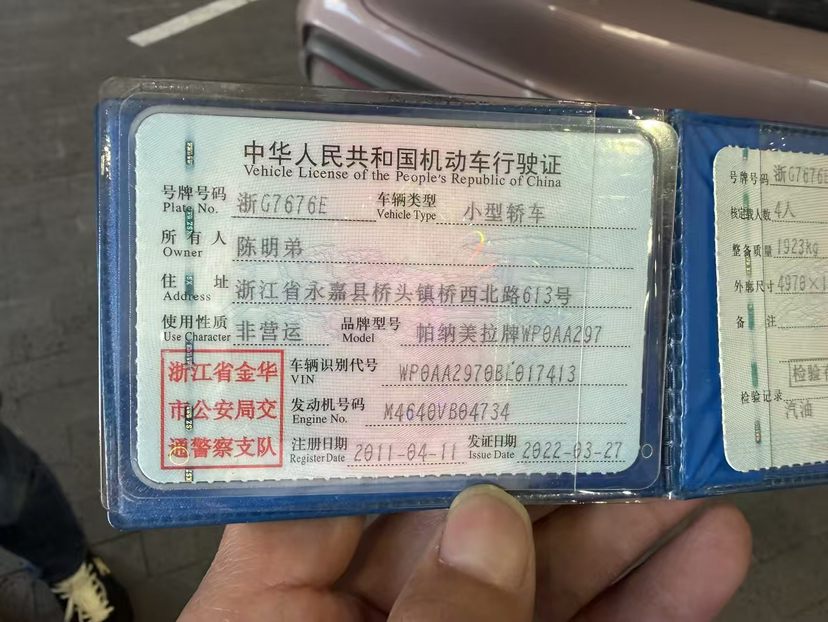 中华人民共和国机动车行驶证
Vehicle License of the People's Republic of China
号牌号码 浙G7676E 车辆类型 小型轿车
Plate No. Vehicle Type
所有人 陈明弟
Owner
住址 浙江省永嘉县桥头镇桥西北路613号
Address
使用性质 非营运 品牌型号 帕纳美拉牌WP0AA297
Use Character Model
浙江省金华
市公安局交
通警察支队
车辆识别代号 WP0AA2970BL017413
VIN
发动机号码 M4640VB04734
Engine No.
注册日期 2011-04-11 发证日期 2022-03-27
Register Date Issue Date
号牌号码 浙G7676E
核定载人数 4人
整备质量 1923kg
外廓尺寸 4970×1
备注
检验记录
汽油